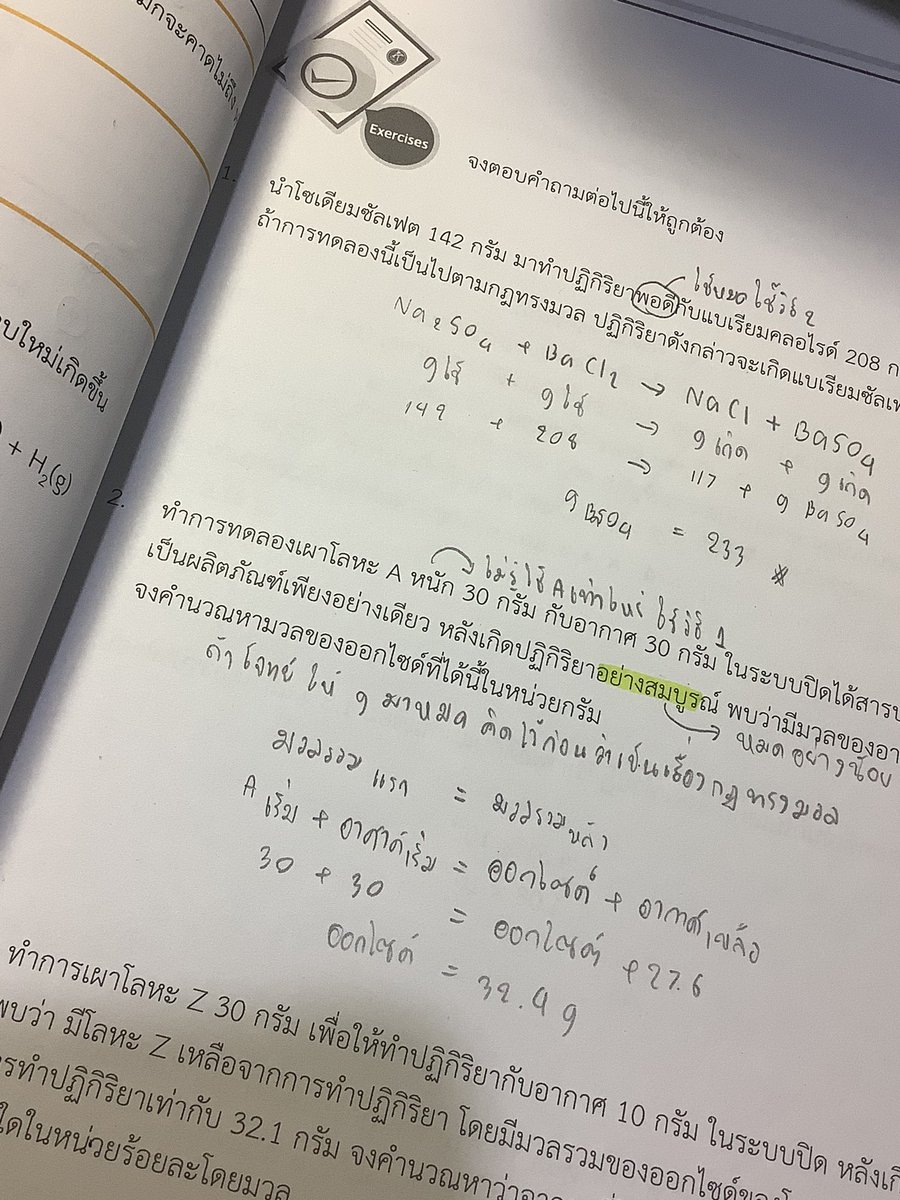 มักจะคาดไม่ถึง
บบใหม่เกิดขึ้น
+ H₂(g)
Exercises
จงตอบคำถามต่อไปนี้ให้ถูกต้อง
1.
นำโซเดียมซัลเฟต 142 กรัม มาทำปฏิกิริยาพอดีกับแบเรียมคลอไรด์ 208 ก
ใช้หมด ใช้วิธี 2
ถ้าการทดลองนี้เป็นไปตามกฎทรงมวล ปฏิกิริยาดังกล่าวจะเกิดแบเรียมซัลเฟ
Na₂SO₄ + BaCl₂ → NaCl + BaSO₄
g ใช้ + g ใช้ → g เกิด + g เกิด
142 + 208 → 117 + g BaSO₄
g BSO₄ = 233
2.
ไม่รู้ใช้ A เท่าไหร่ ใช้วิธี 1
ทำการทดลองเผาโลหะ A หนัก 30 กรัม กับอากาศ 30 กรัม ในระบบปิดได้สาร
เป็นผลิตภัณฑ์เพียงอย่างเดียว หลังเกิดปฏิกิริยาอย่างสมบูรณ์ พบว่ามีมวลของอา
จงคำนวณหามวลของออกไซด์ที่ได้นี้ในหน่วยกรัม
หมดอย่างน้อย
ถ้าโจทย์ให้ g มาหมด คิดไว้ก่อนว่าเป็นเรื่องกฎทรงมวล
มวลรวมแรก = มวลรวมหลัง
A เริ่ม + อากาศเริ่ม = ออกไซด์ + อากาศเหลือ
30 + 30 = ออกไซด์ + 27.6
ออกไซด์ = 32.4 g
ทำการเผาโลหะ Z 30 กรัม เพื่อให้ทำปฏิกิริยากับอากาศ 10 กรัม ในระบบปิด หลังเกิ
พบว่า มีโลหะ Z เหลือจากการทำปฏิกิริยา โดยมีมวลรวมของออกไซด์ของโ
รทำปฏิกิริยาเท่ากับ 32.1 กรัม จงคำนวณหาว่าอาก
ใดในหน่วยร้อยละโดยมวล